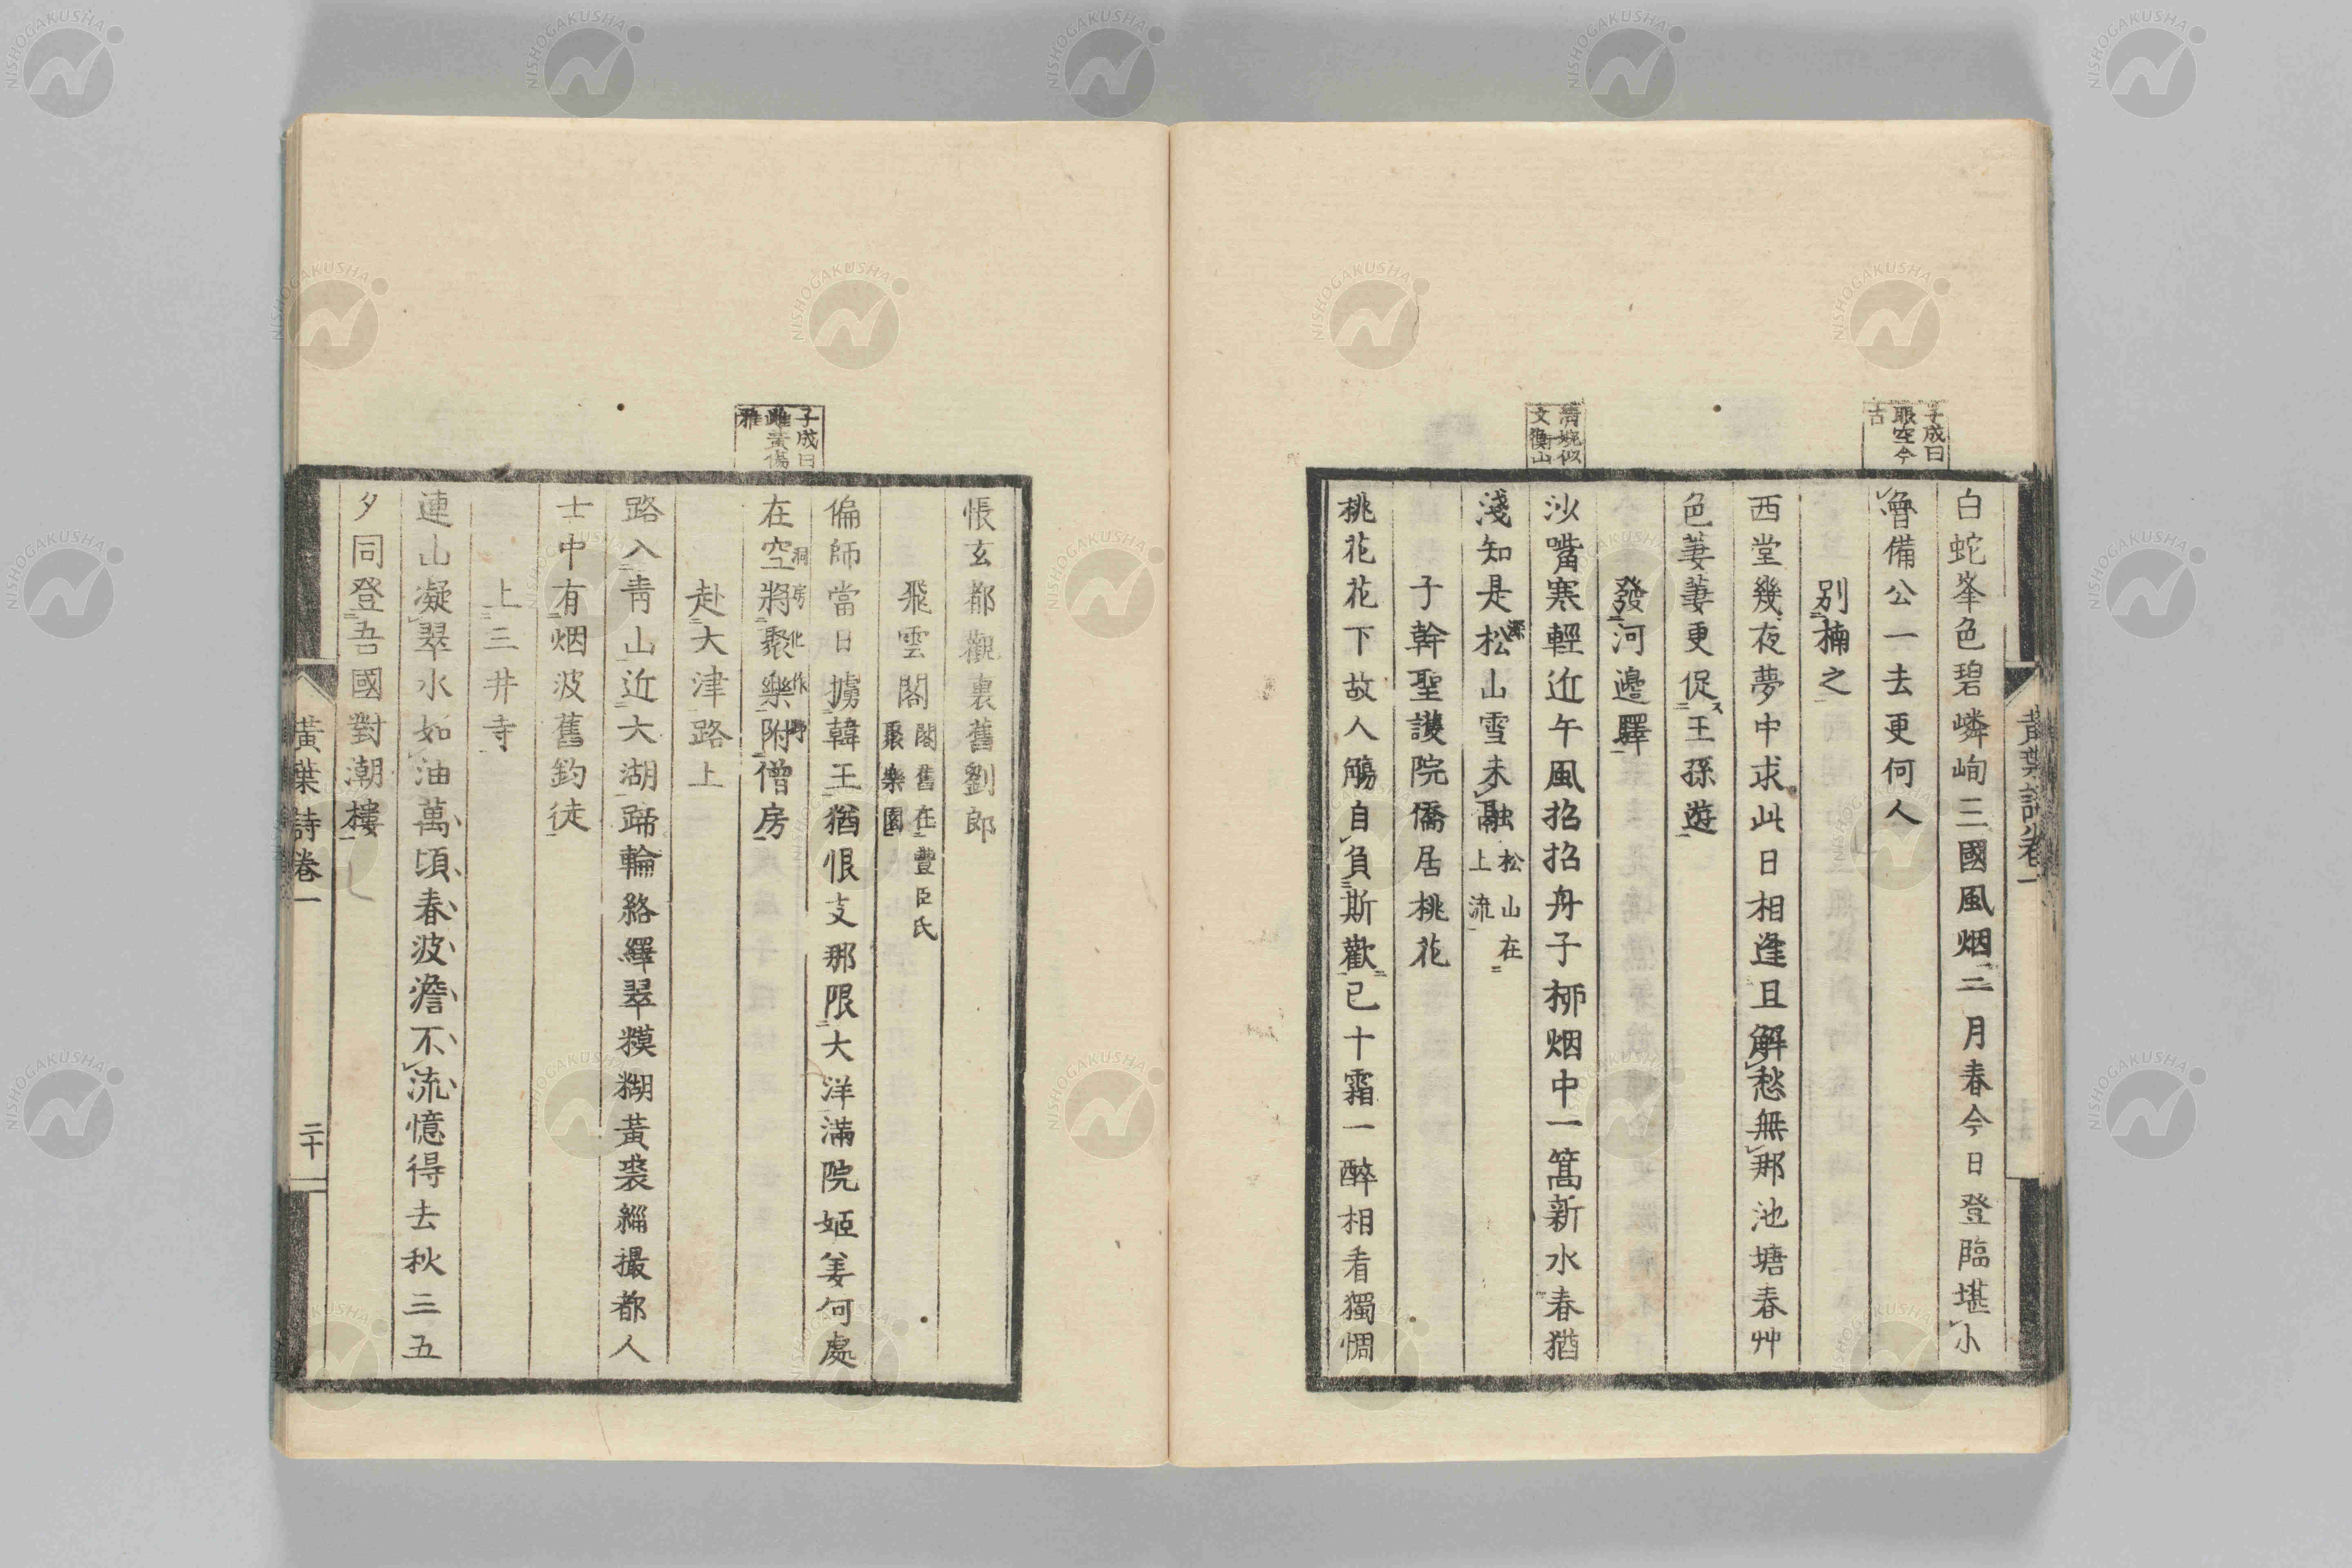 黃葉詩卷一
子成曰
眼空今
古
白蛇峯色碧嶙峋三國風烟二月春今日登臨堪小
魯備公一去更何人
別楠之
西堂幾夜夢中求此日相逢且解愁無那池塘春艸
色萋萋更促王孫遊
發河邊驛
清婉似
文衡山
沙嘴寒輕近午風招招舟子柳烟中一篙新水春猶
淺知是松山雪未融
松山在
上流
子幹聖護院僑居桃花
桃花花下故人觴自負斯歡已十霜一醉相看獨惆
悵玄都觀裏舊劉郎
飛雲閣
閣舊在豐臣氏
聚樂園
偏師當日擄韓王猶恨支那限大洋滿院姬姜何處
在空將聚樂附僧房
洞房化作野
子成曰
雌黃傷
雅
赴大津路上
路入青山近大湖蹄輪絡繹翠糢糊黃裘緇撮都人
士中有烟波舊釣徒
上三井寺
連山凝翠水如油萬頃春波澹不流憶得去秋三五
夕同登吾國對潮樓
黃葉詩卷一
二十
NISHOGAKUSHA